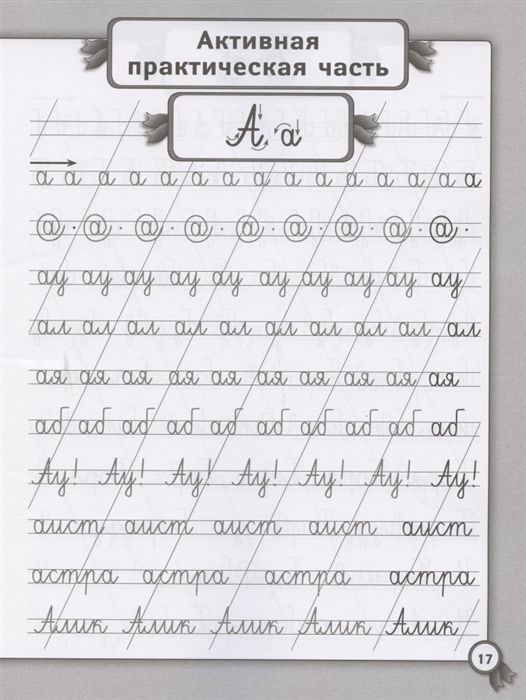 Активная
практическая часть
А а
а а а а а а а а а а а а а а а
@ · @ · @ · @ · @ · @ · @ · @ · @ ·
ау ау ау ау ау ау ау ау ау ау
ал ал ал ал ал ал ал ал ал ал
ая ая ая ая ая ая ая ая ая ая
аб аб аб аб аб аб аб аб аб аб
Ау! Ау! Ау! Ау! Ау! Ау! Ау!
аист аист аист аист аист
астра астра астра астра
Алик Алик Алик Алик Алик
17